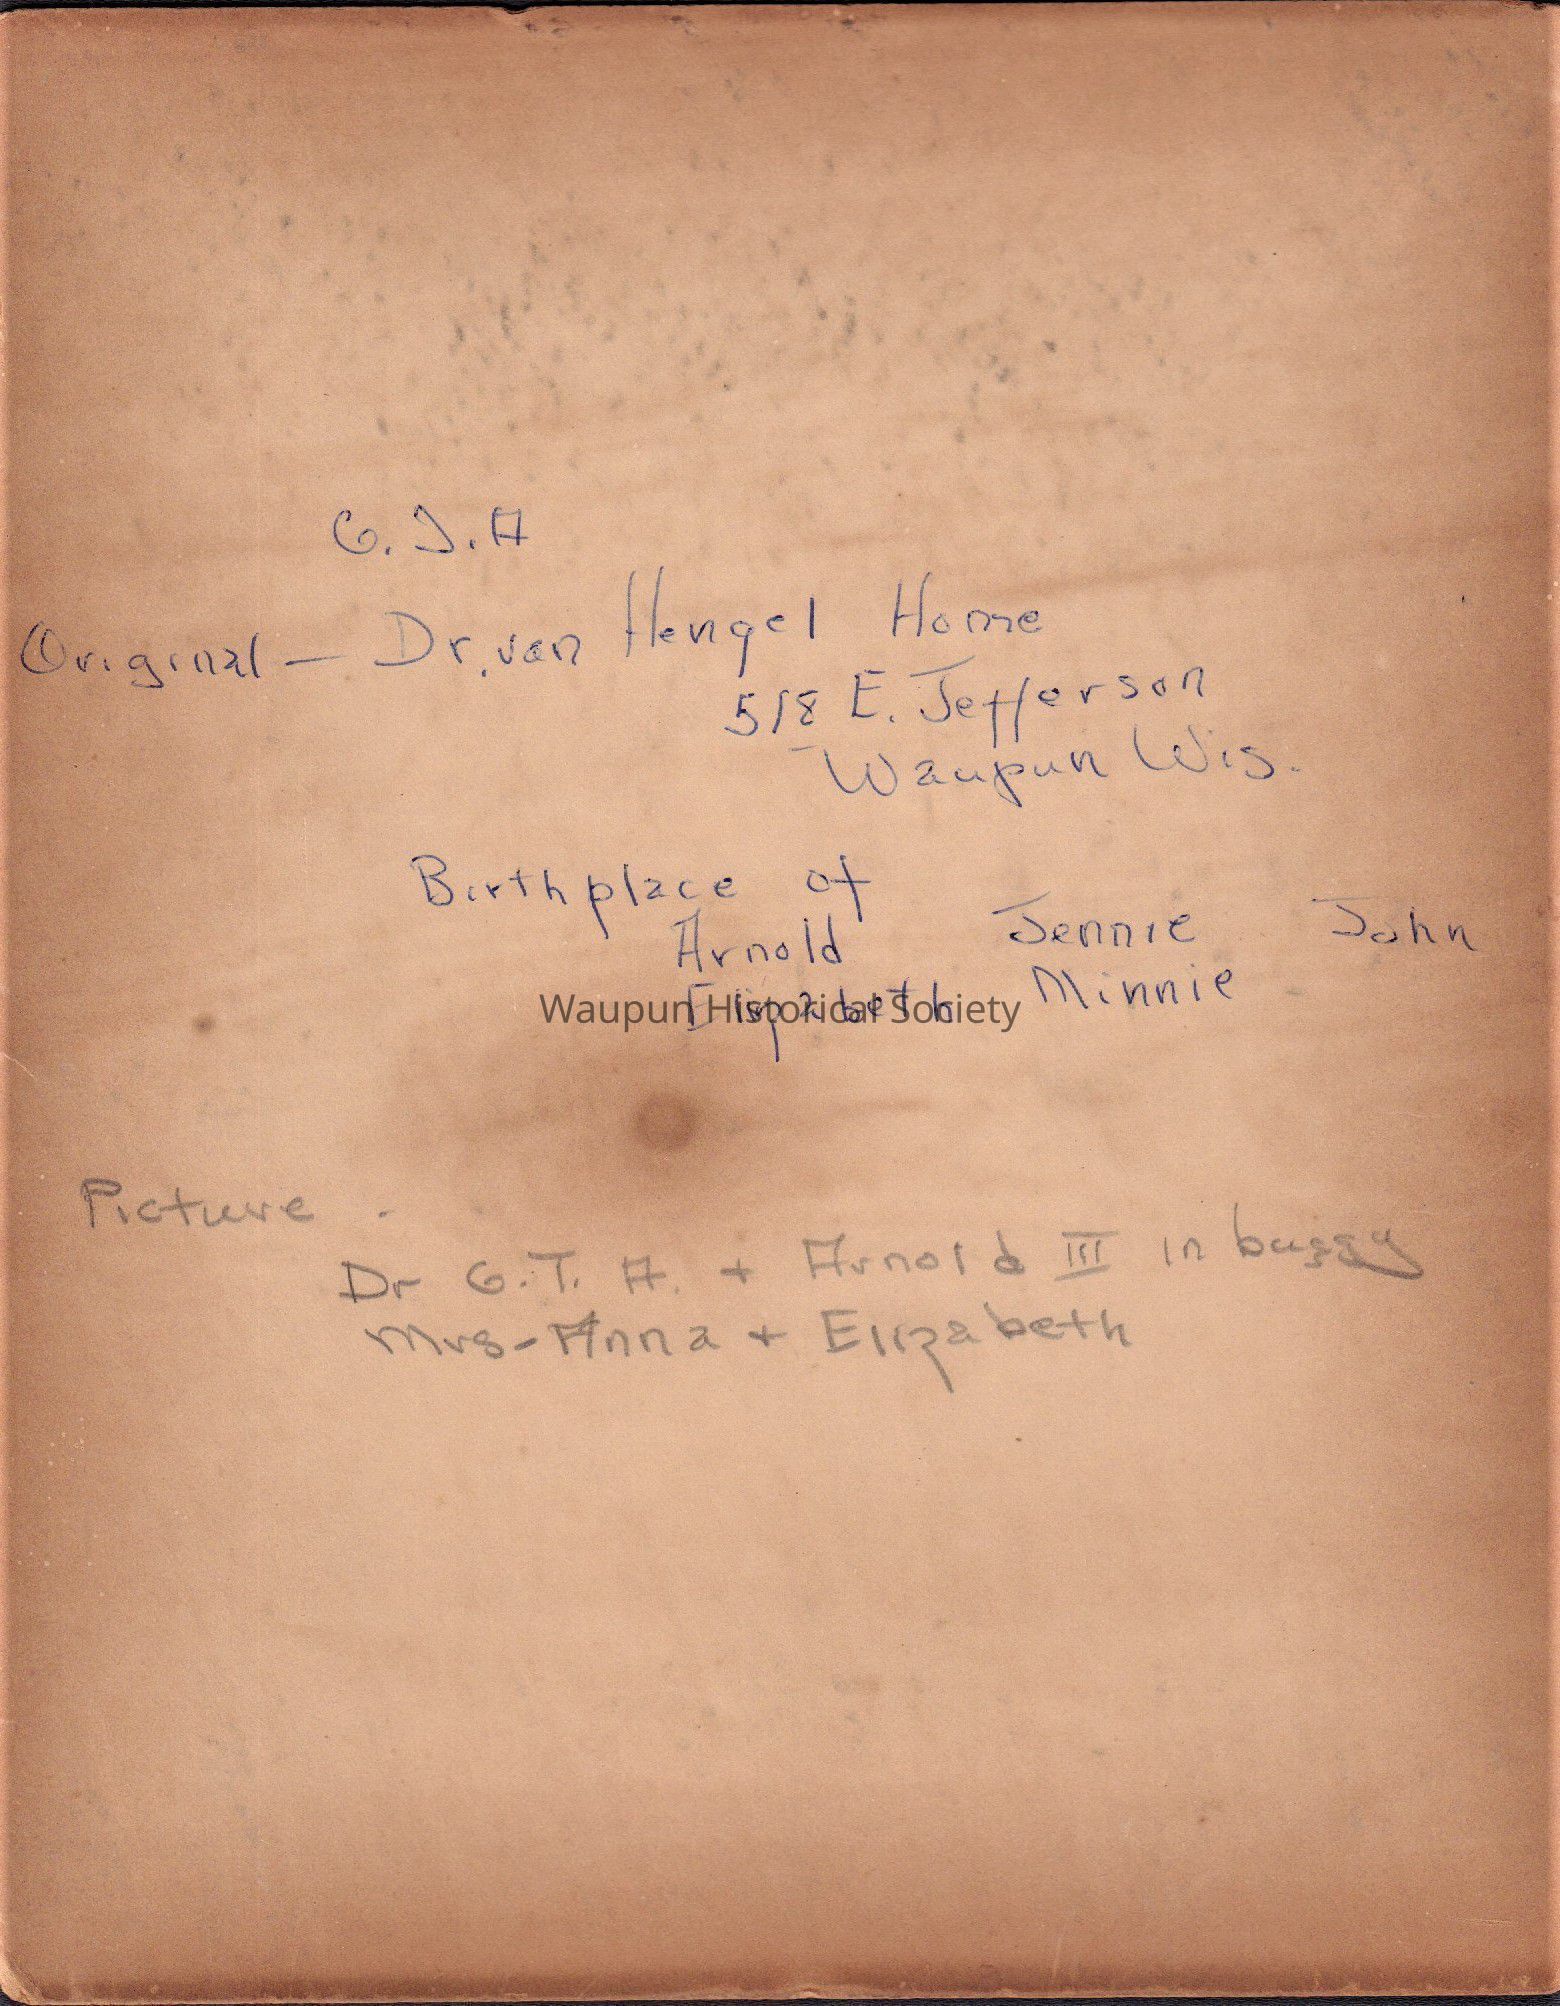 G. J. A
Original — Dr. van Hengel Home
518 E. Jefferson
Waupun Wis.
Birthplace of
Arnold Jennie John
Elizabeth Minnie
Waupun Historical Society
Picture .
Dr G. T. A. + Arnold III in buggy
Mrs - Anna + Elizabeth